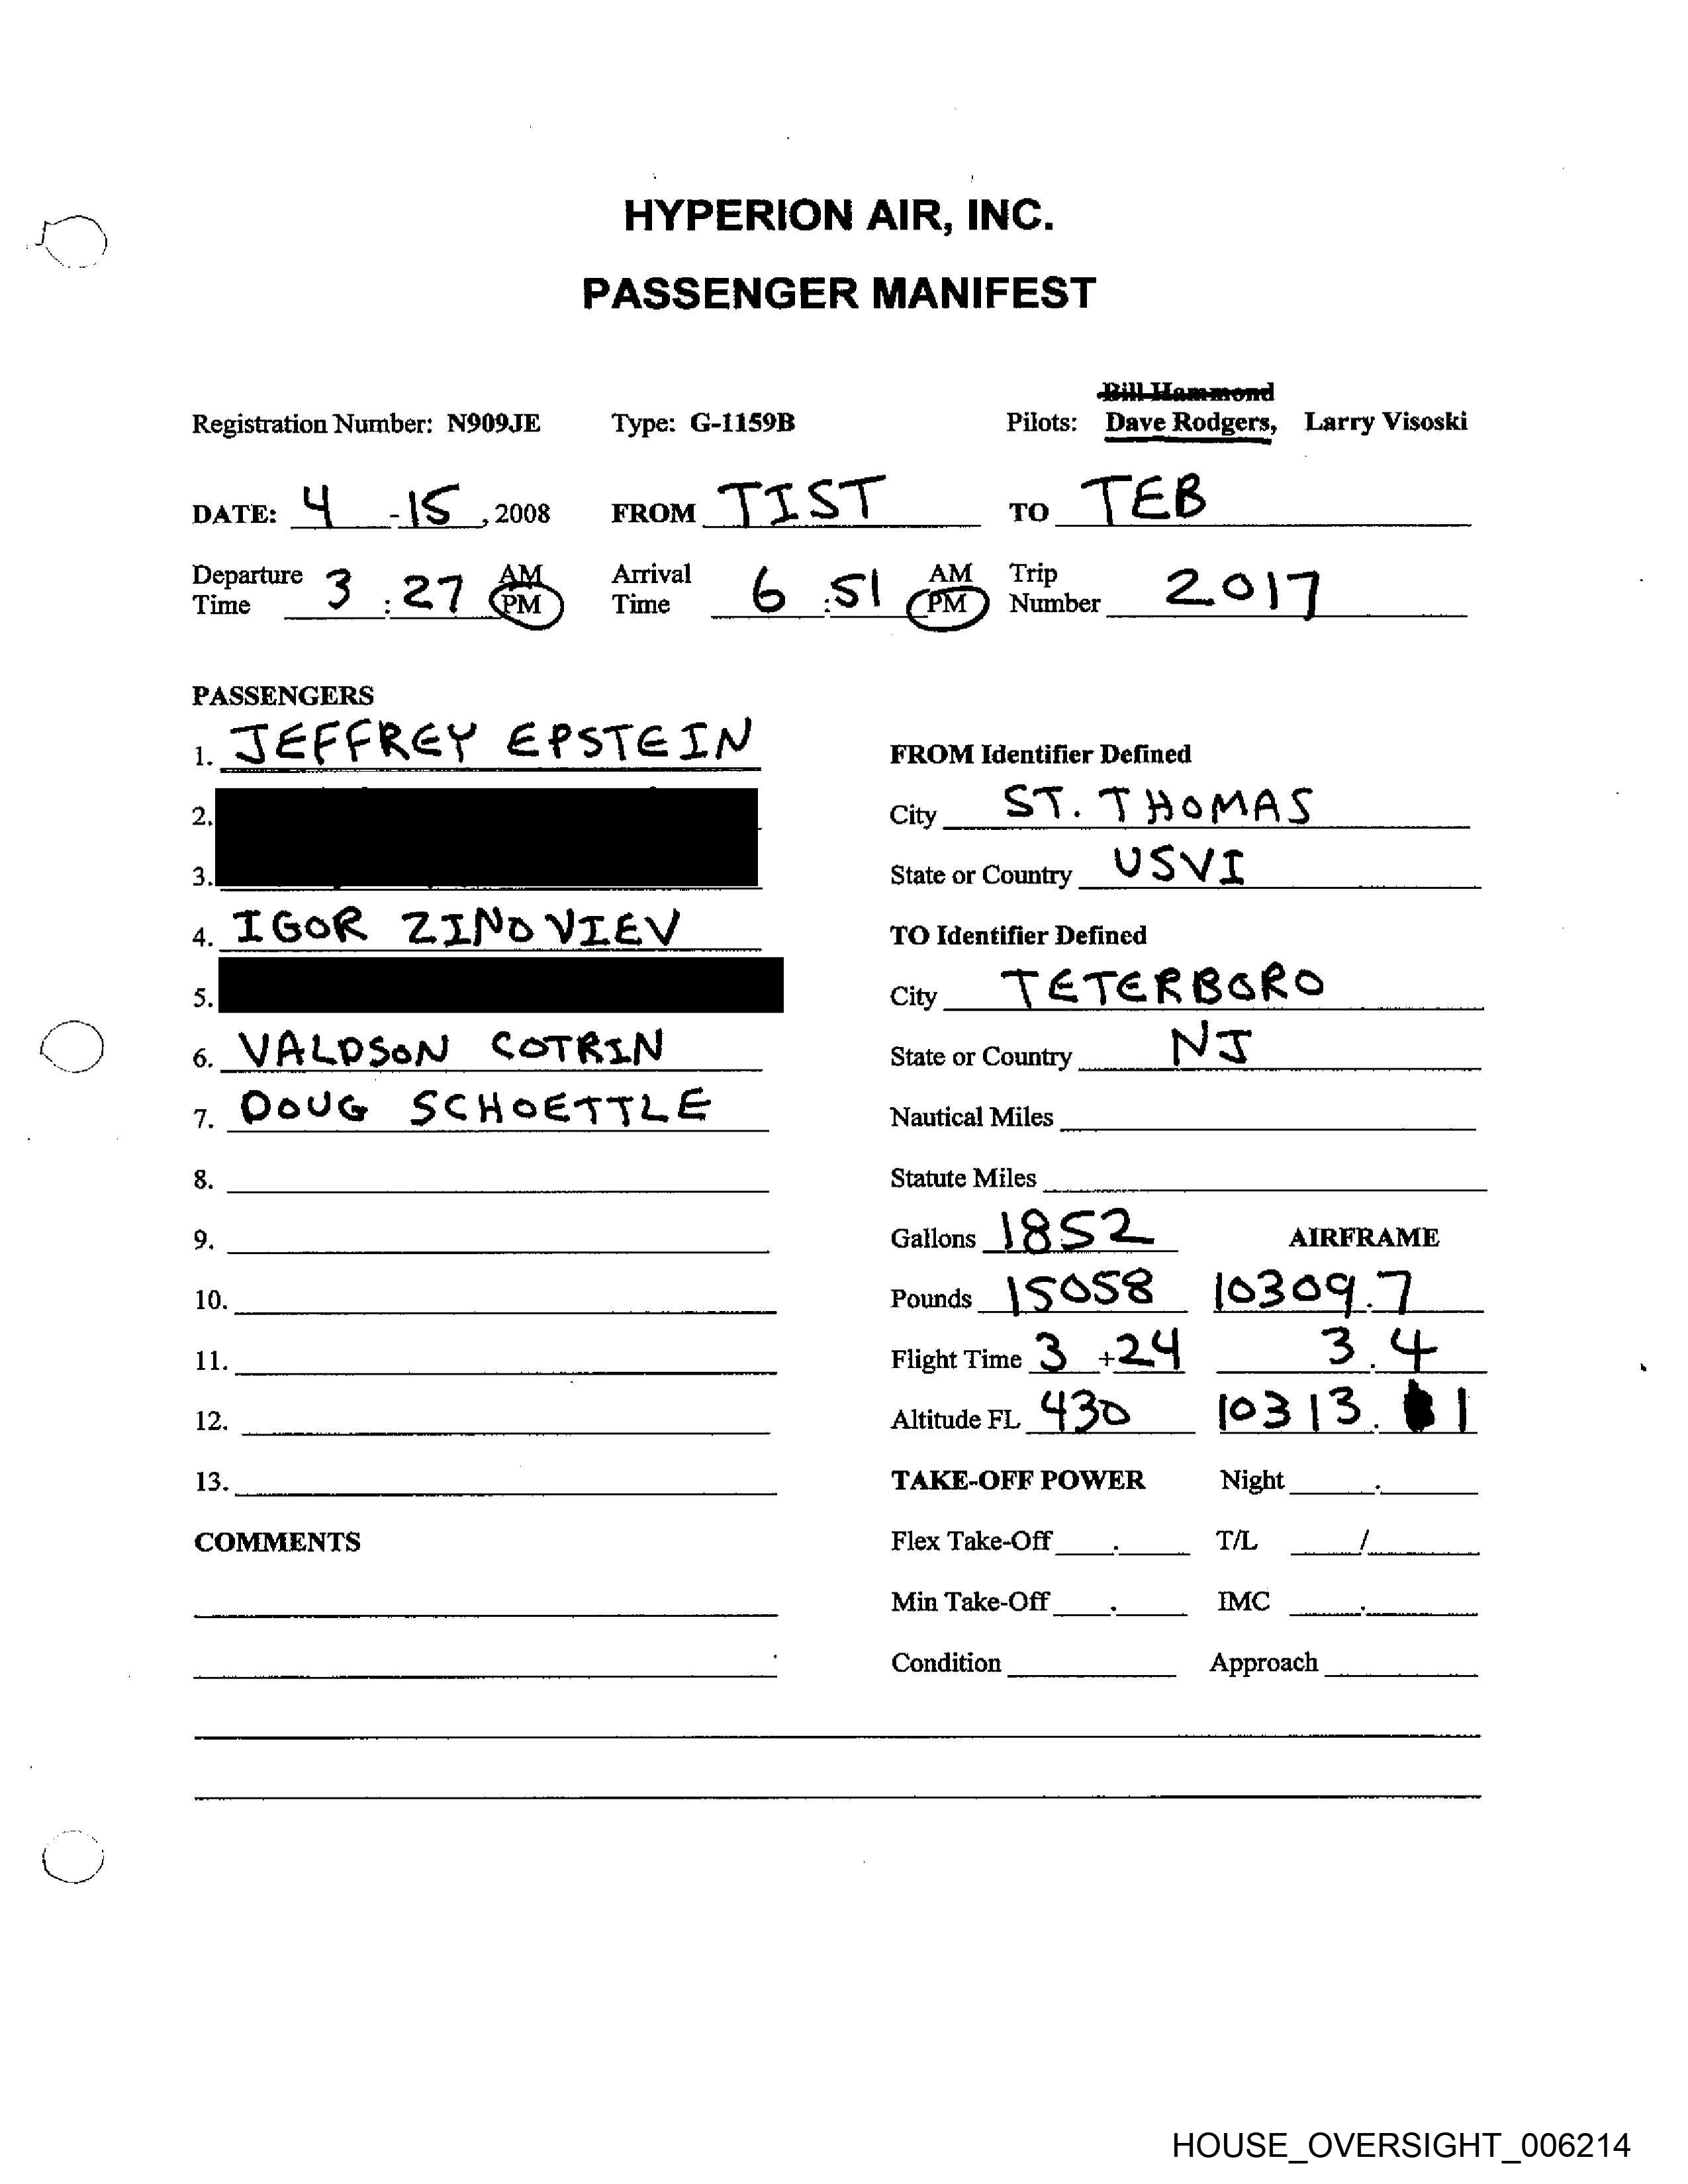 HYPERION AIR, INC.
PASSENGER MANIFEST
Bill Hammond
Registration Number: N909JE Type: G-1159B Pilots: Dave Rodgers, Larry Visoski
DATE: 4 - 15, 2008 FROM TIST TO TEB
Departure Time 3 : 27 AM PM Arrival Time 6 : 51 AM PM Trip Number 2017
PASSENGERS
1. JEFFREY EPSTEIN
2.
3.
4. IGOR ZINOVIEV
5.
6. VALDSON COTRIN
7. DOUG SCHOETTLE
8.
9.
10.
11.
12.
13.
COMMENTS
FROM Identifier Defined
City ST. THOMAS
State or Country USVI
TO Identifier Defined
City TETERBORO
State or Country NJ
Nautical Miles
Statute Miles
Gallons 1852 AIRFRAME
Pounds 15058 10309.7
Flight Time 3 +24 3.4
Altitude FL 430 10313.1
TAKE-OFF POWER Night .
Flex Take-Off . T/L /
Min Take-Off . IMC .
Condition Approach
HOUSE_OVERSIGHT_006214